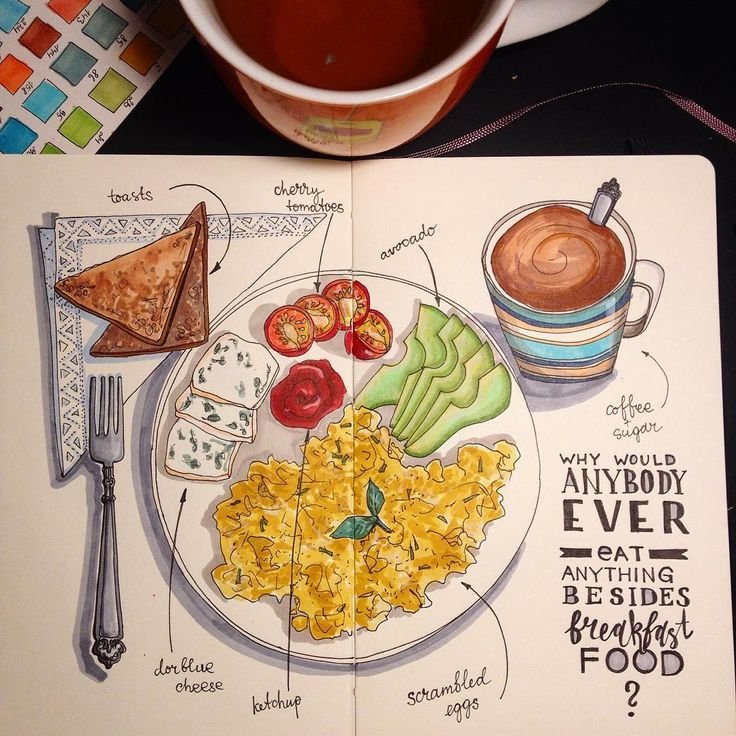 toasts
cherry
tomatoes
avocado
coffee
+
sugar
WHY WOULD
ANYBODY
EVER
EAT
ANYTHING
BESIDES
breakfast
FOOD
?
dorblue
cheese
ketchup
scrambled
eggs